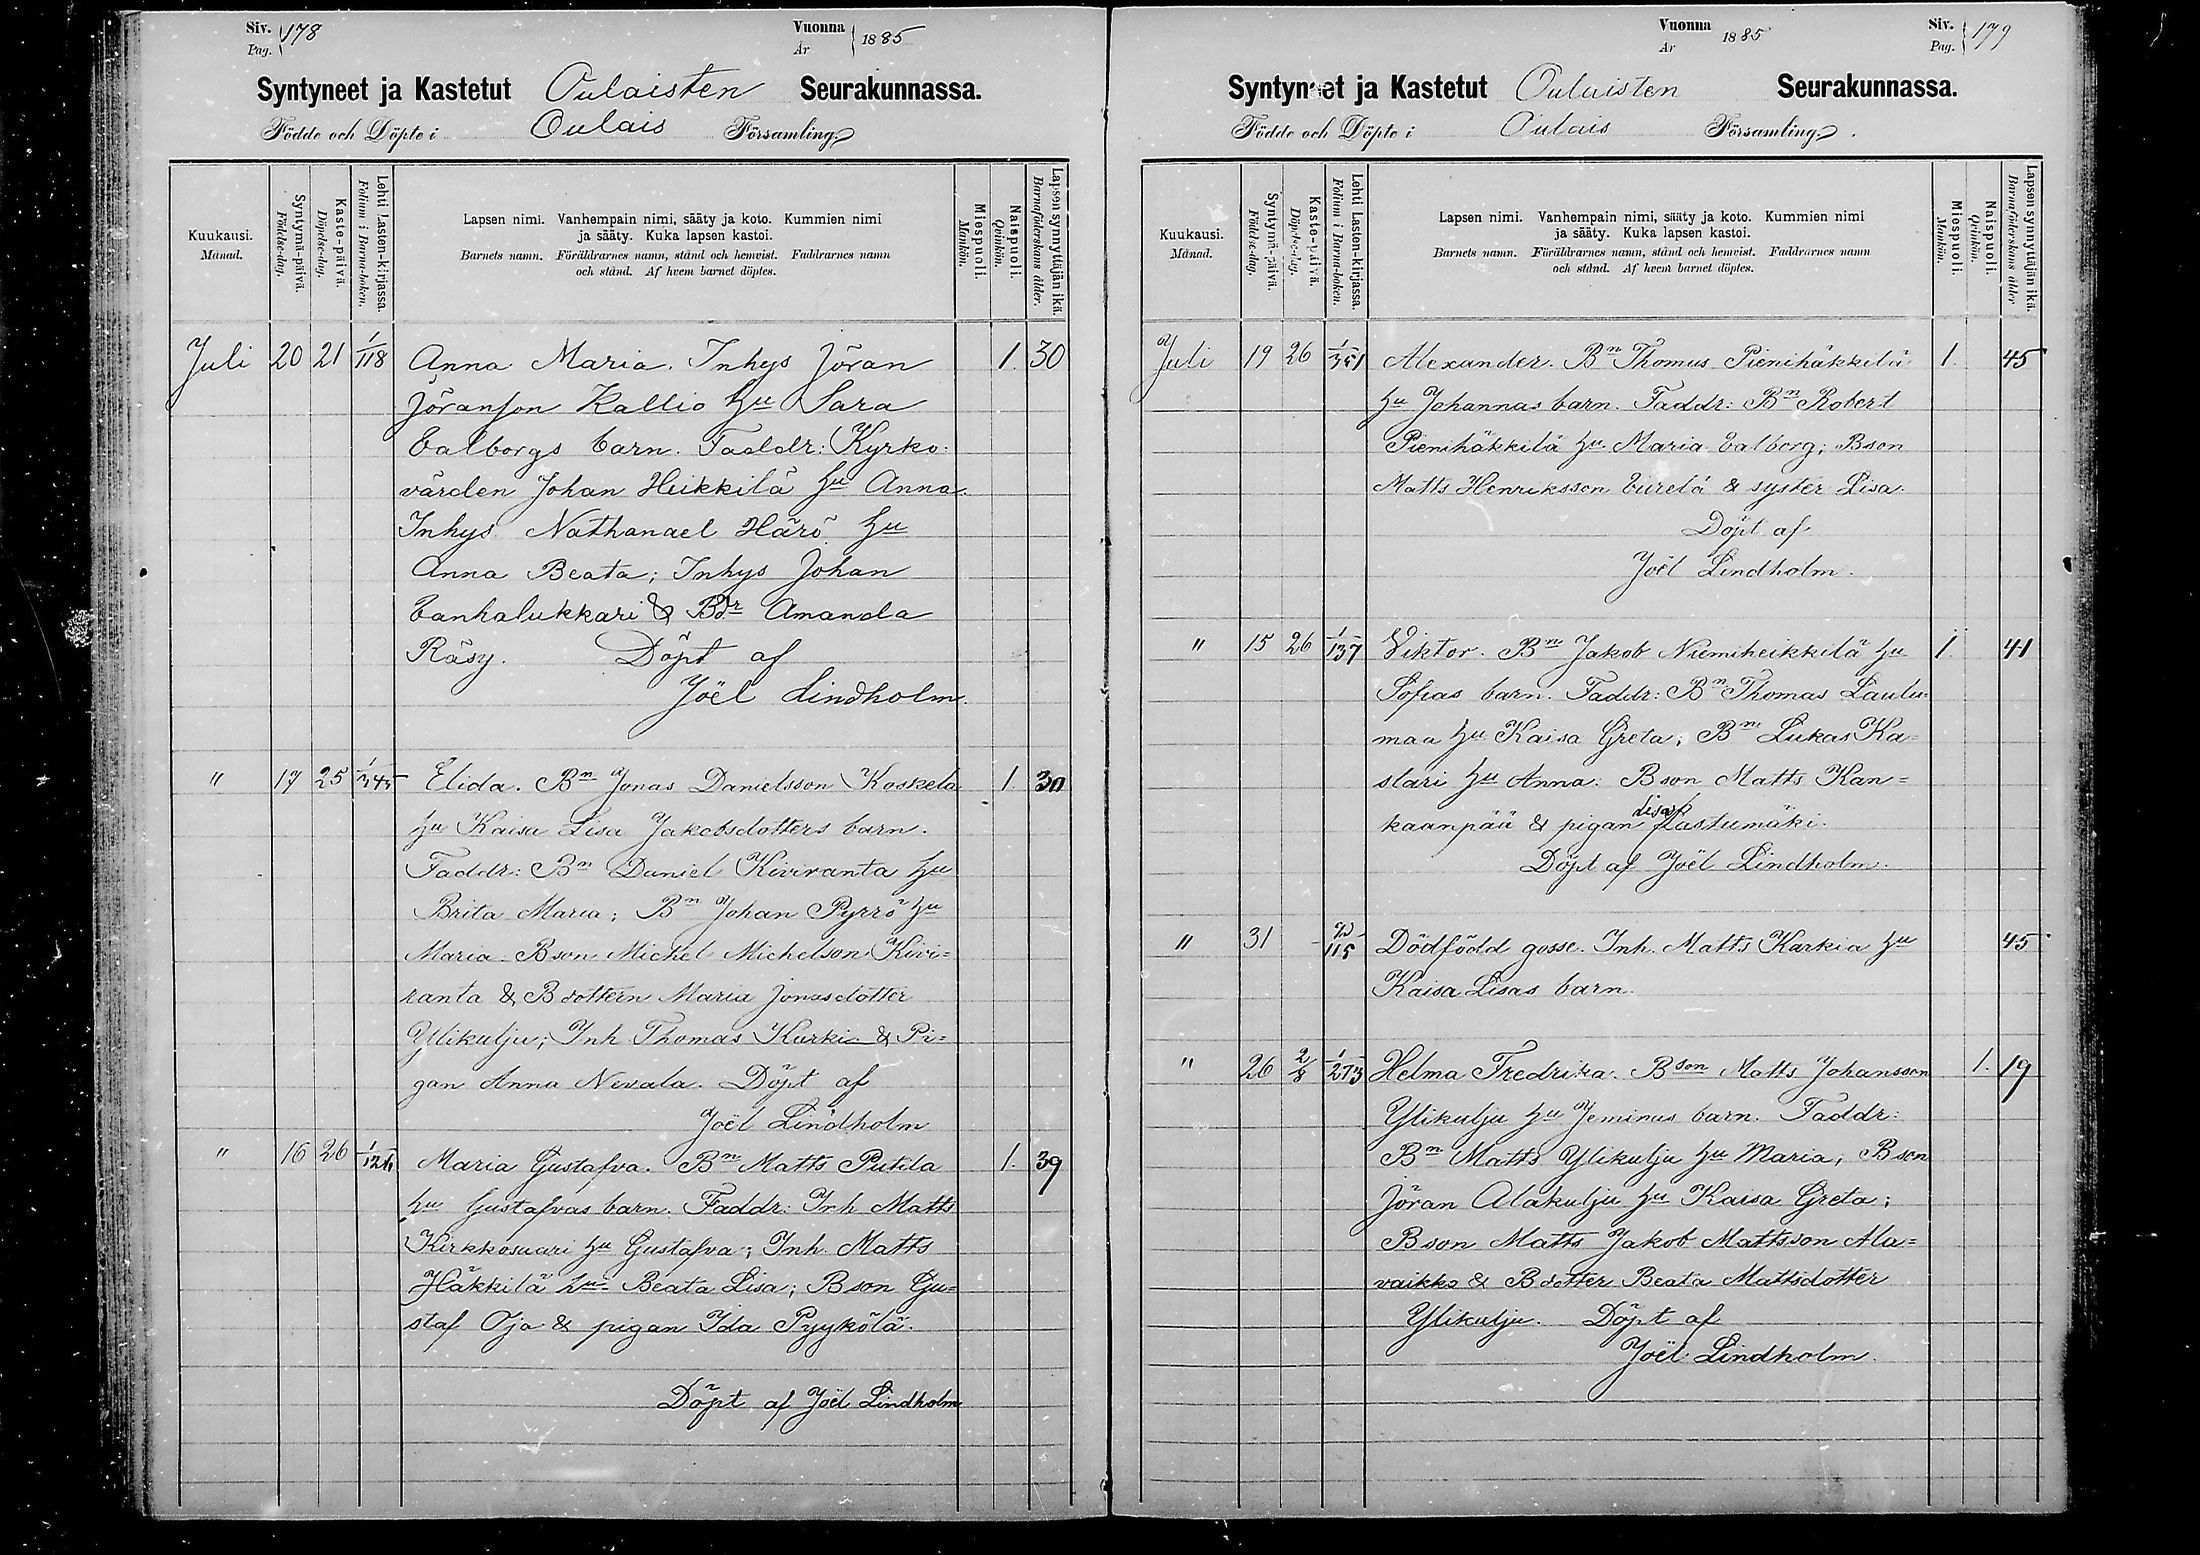 Siv. Pag. 178
Vuonna År 1885
Syntyneet ja Kastetut Oulaisten Seurakunnassa.
Födde och Döpte i Oulais Församling
Kuukausi. Månad.
Syntymä-päivä. Födelse-dag.
Kaste-päivä. Döpelse-dag.
Lehti Lasten-kirjassa. Folium i Barna-boken.
Lapsen nimi. Vanhempain nimi, sääty ja koto. Kummien nimi
ja sääty. Kuka lapsen kastoi.
Barnets namn. Föräldrarnes namn, stånd och hemvist. Faddrarnes namn
och stånd. Af hvem barnet döptes.
Miespuoli. Mankön.
Naispuoli. Qvinkön.
Lapsen synnyttäjän ikä. Barnaföderskans ålder.
Juli 20 21 1/118 Anna Maria. Inhys Jöran 1. 30
Jöranson Kallio hu Sara
Valborgs barn. Faddr: Kyrko-
värden Johan Heikkilä hu Anna.
Inhys Nathanael Härö hu
Anna Beata; Inhys Johan
Vanhalukkari & Bdr Amanda
Räsy. Döpt af
Joël Lindholm.
" 17 25 1/345 Elida. Bn Jonas Danielsson Koskela 1. 30
hu Kaisa Lisa Jakobsdotters barn.
Faddr: Bn Daniel Kiviranta hu
Brita Maria; Bn Johan Pyrrö hu
Maria. Bson Michel Michelson Kivi=
ranta & Bdottern Maria Jonasdotter
Ylikulju; Inh Thomas Karki & Pi=
gan Anna Nevala. Döpt af
Joël Lindholm
" 16 26 Maria Gustafva. Bn Matts Putila 1. 39
hu Gustafvas barn. Faddr: Inh Matts
Kirkkosaari hu Gustafva; Inh. Matts
Häkkilä hu Beata Lisa; Bson Gu=
staf Oja & pigan Ida Pyykölä.
Döpt af Joël Lindholm
Vuonna År 1885
Siv. Pag. 179
Syntyneet ja Kastetut Oulaisten Seurakunnassa.
Födde och Döpte i Oulais Församling.
Kuukausi. Månad.
Syntymä-päivä. Födelse-dag.
Kaste-päivä. Döpelse-dag.
Lehti Lasten-kirjassa. Folium i Barna-boken.
Lapsen nimi. Vanhempain nimi, sääty ja koto. Kummien nimi
ja sääty. Kuka lapsen kastoi.
Barnets namn. Föräldrarnes namn, stånd och hemvist. Faddrarnes namn
och stånd. Af hvem barnet döptes.
Miespuoli. Mankön.
Naispuoli. Qvinkön.
Lapsen synnyttäjän ikä. Barnaföderskans ålder
Juli 19 26 1/351 Alexander. Bn Thomas Pienihäkkilä 1. 45
hu Johannas barn. Faddr: Bn Robert
Pienihäkkilä hu Maria Valborg; Bson
Matts Henriksson & syster Lisa.
Döpt af
Joël Lindholm.
" 15 26 1/137 Viktor. Bn Jakob Niemiheikkilä hu 1. 41
Sofias barn. Faddr: Bn Thomas Laulu-
maa hu Kaisa Greta; Bn Lukas Ka=
stari hu Anna. Bson Matts Kan=
Lisa
kaanpää & pigan Lastumäki.
Döpt af Joël Lindholm.
" 31 Dödfödd gosse. Inh. Matts Karkia hu 45
Kaisa Lisas barn.
" 26 2/8 1/273 Helma Fredrika. Bson Matts Johansson 1. 19
Ylikulju hu Jeminas barn. Faddr:
Bn Matts Ylikulju hu Maria; Bson
Jöran Alakulju hu Kaisa Greta;
Bson Matts Jakob Mattsson Ala=
vaikko & Bdotter Beata Mattsdotter
Ylikulju. Döpt af
Joël Lindholm.